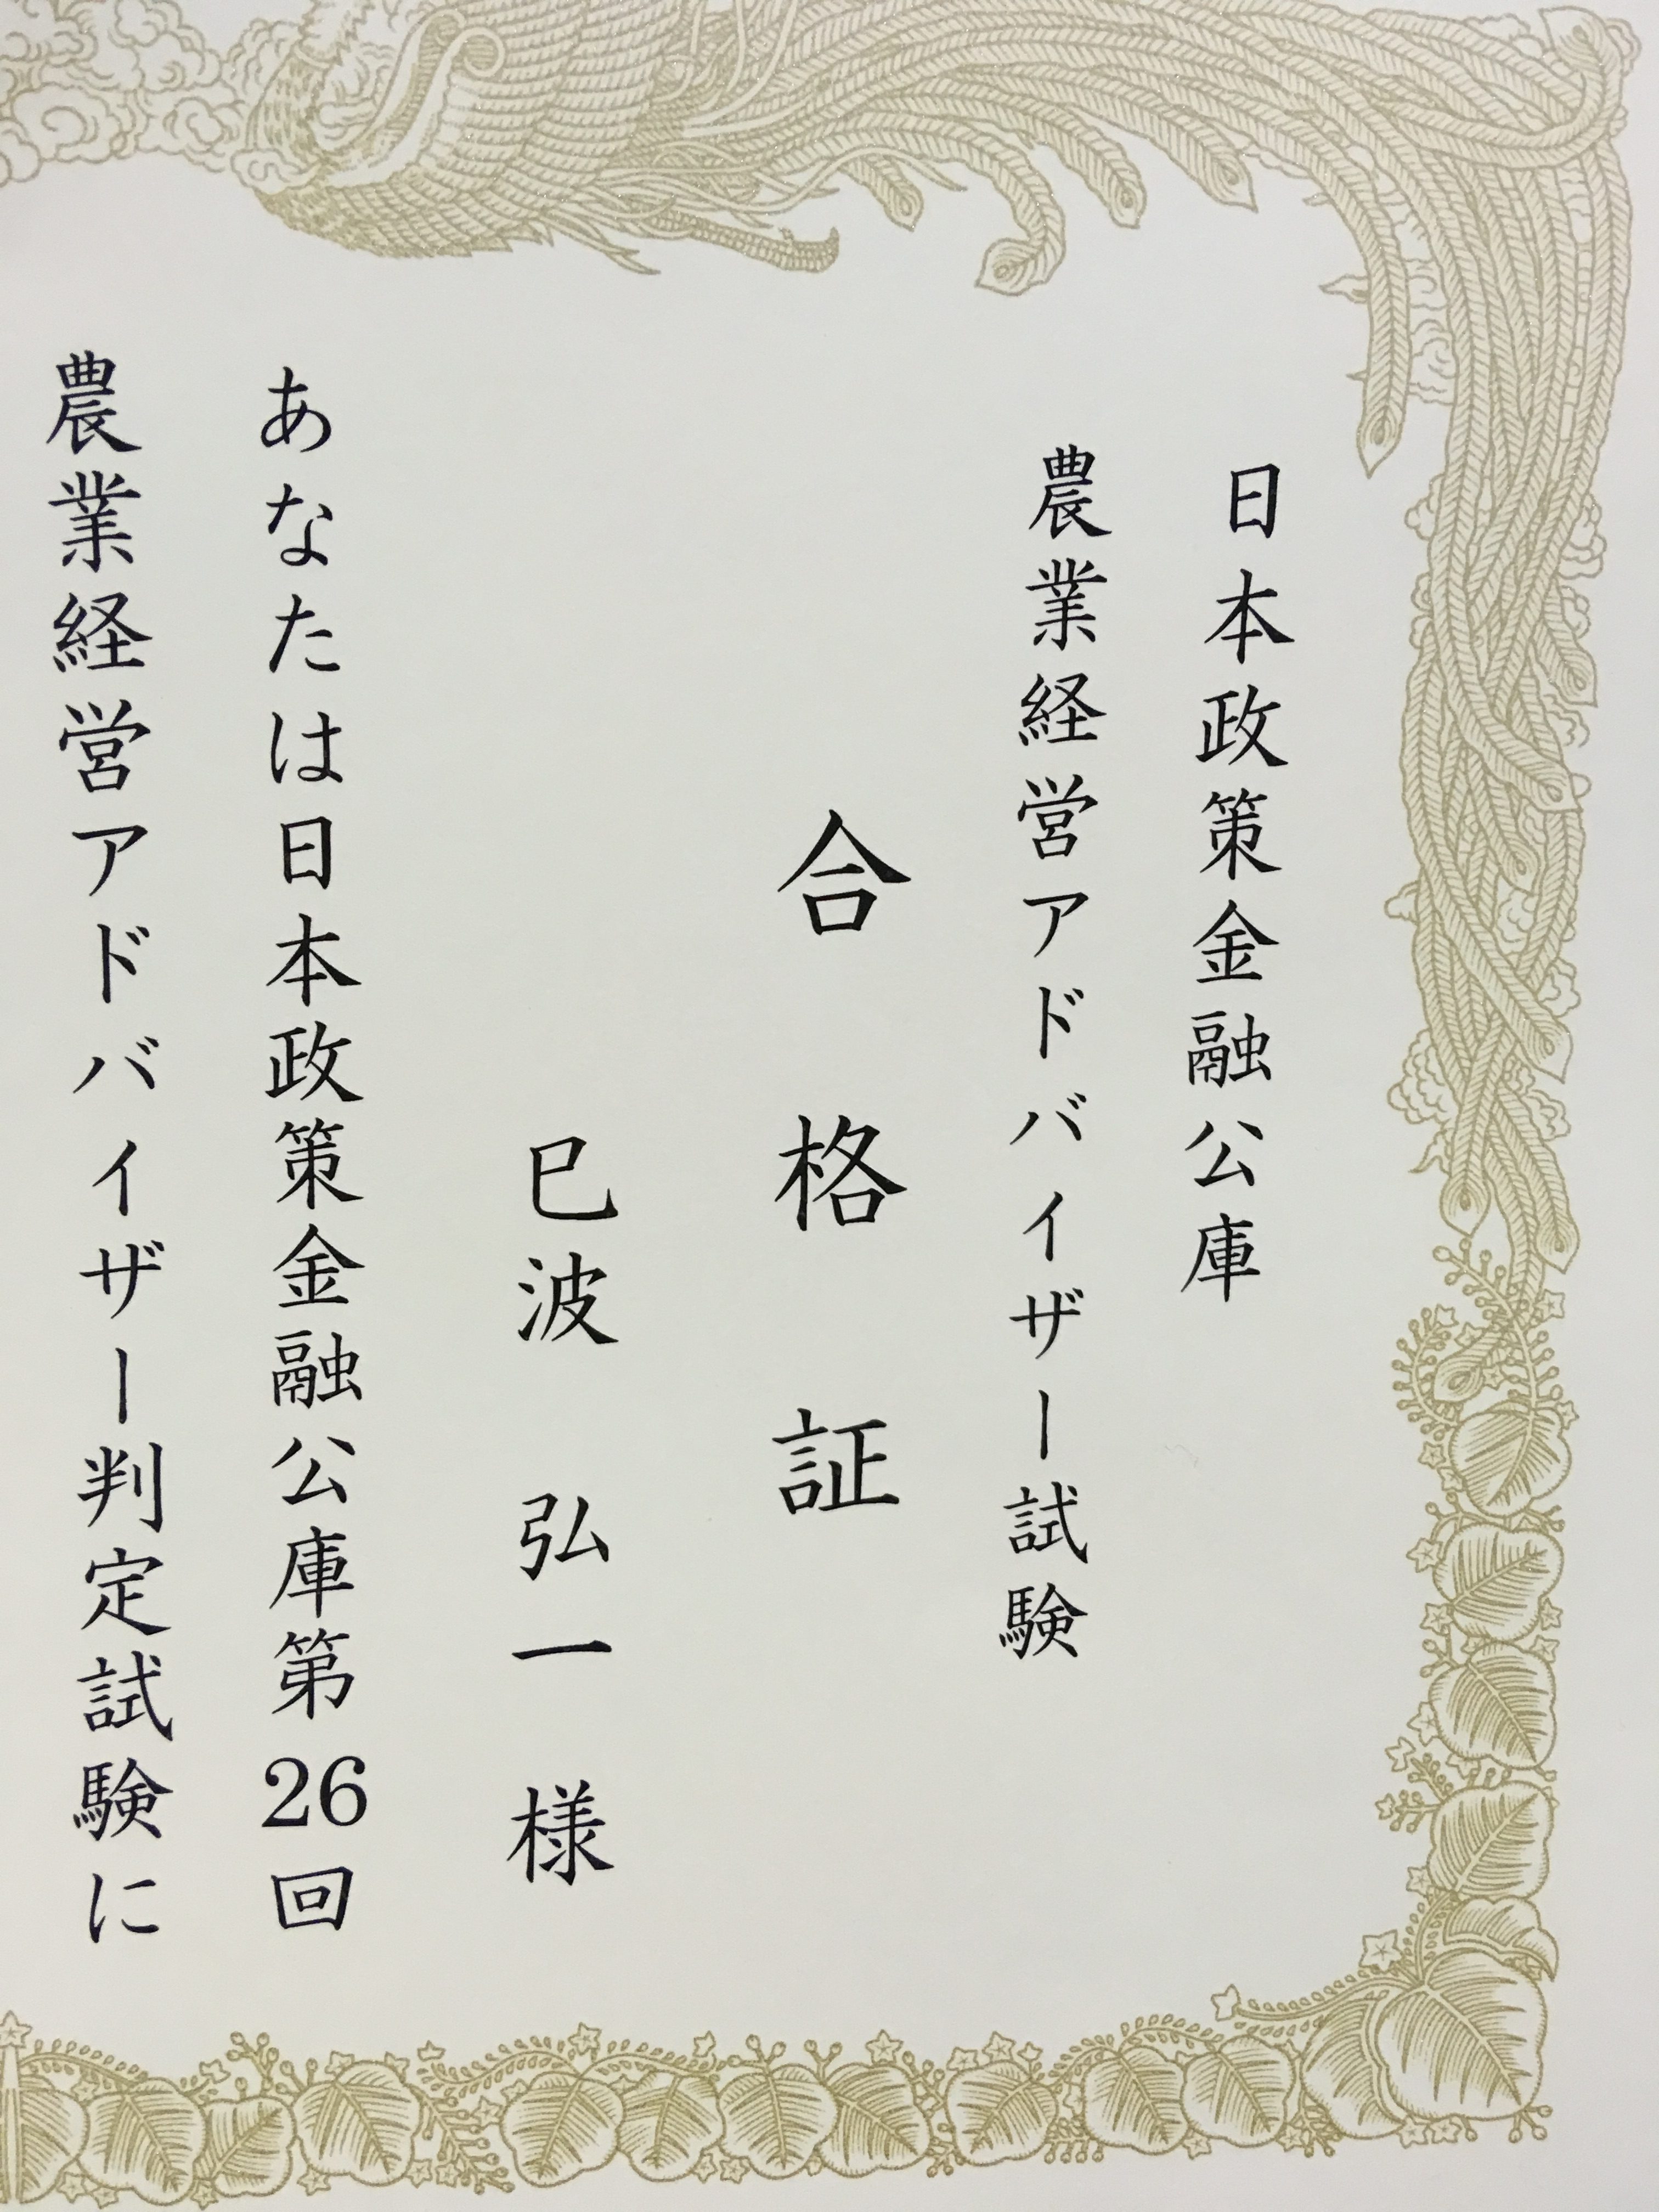 日本政策金融公庫
農業経営アドバイザー試験
合格証
巳波 弘一 様
あなたは日本政策金融公庫第26回
農業経営アドバイザー判定試験に